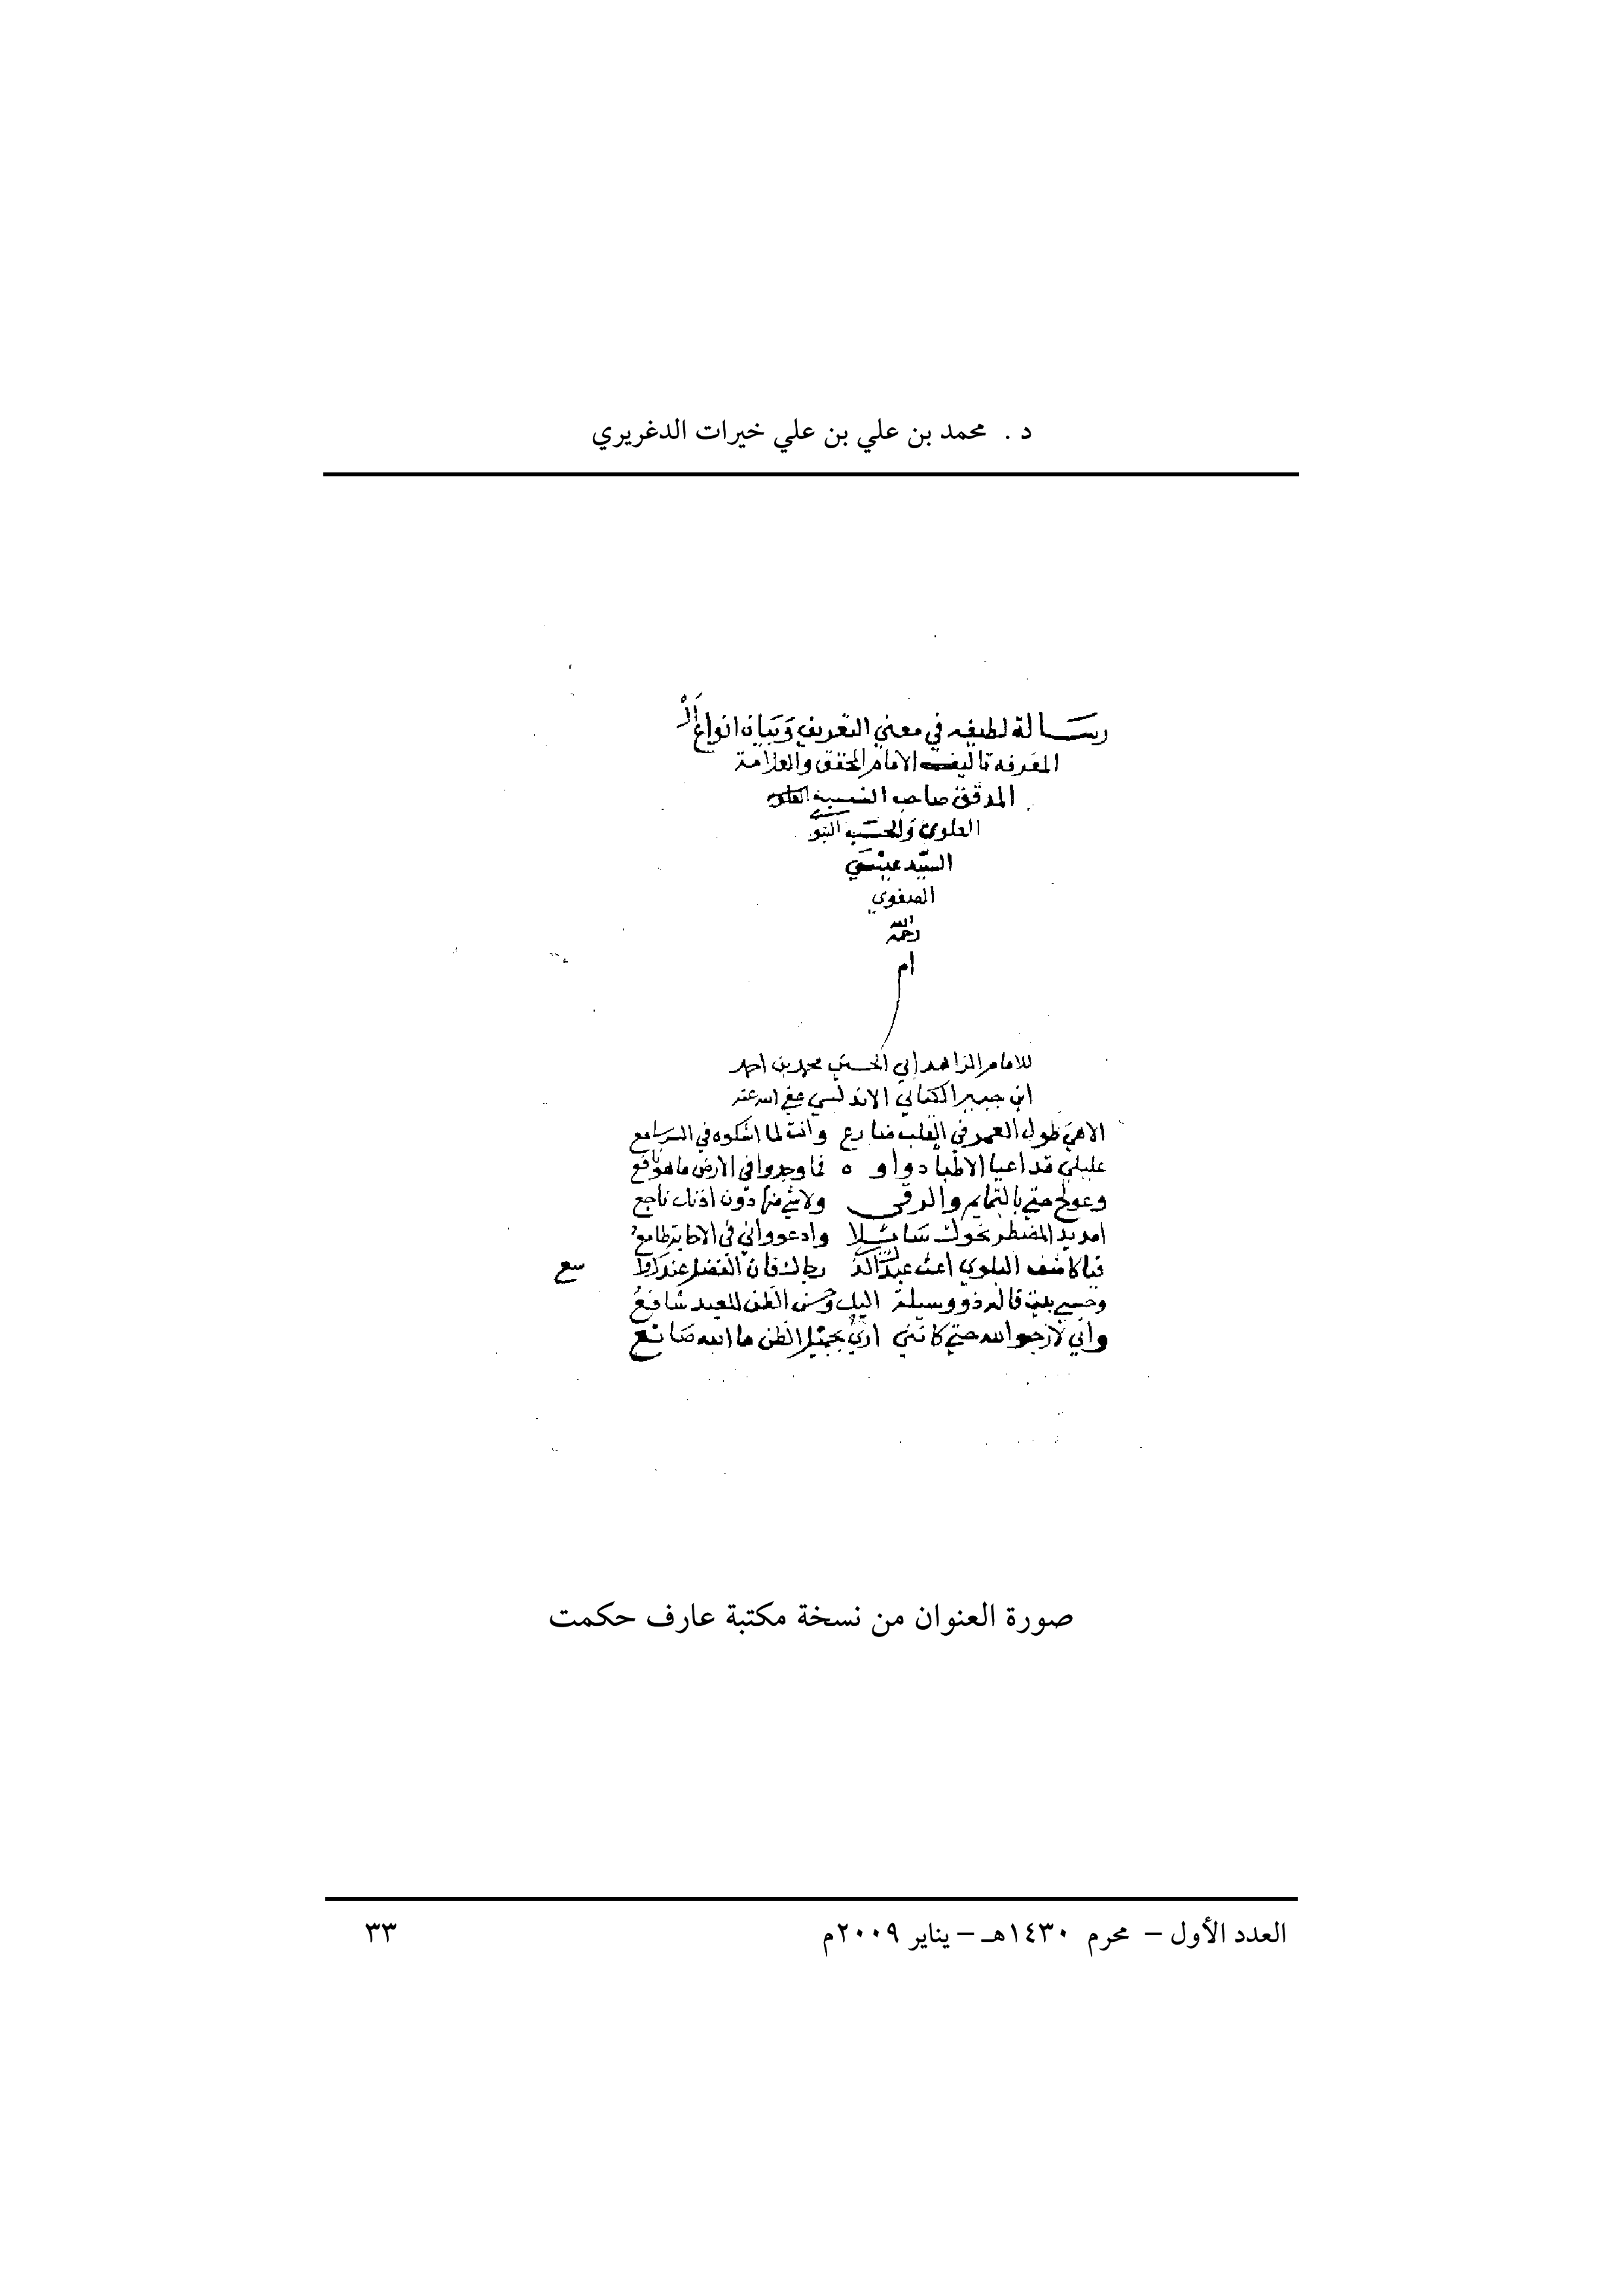 د . محمد بن علي بن علي خيرات الدغريري
رسالة لطيفه في معني التعريف وبيان انواع ال
المعرفه تاليف الامام المحقق والعلامة
المدقق صاحب النسبة
العلوي والحسب النبو
السيد عيسي
الصفوي
رحمه الله
ام
للامام الزاهد ابي الحسن محمد بن احمد
ابن جبير الكناني الاندلسي عفي الله عنه
الاهي طول العمر في القلب ضارع وانت لما اشكوه في السر سامع
عليلي قد اعيا الاطبا دواوه فما وجدوا في الارض ما هو نافع
وعولج حتي بالتمايم والرقي ولا شي منها دون اذنك ناجع
امد يد المضطر نحوك سائلا وادعو واني في الاجابة طامع
فيا كاشف البلوي اغث عبدك الذي رجاك فان الفضل عندك واسع
وحسبي بيت قاله ذو وسيلة اليك وحسن الظن للعبد شافع
واني لارجو الله حتي كانني اري بجميل الظن ما الله صانع
صورة العنوان من نسخة مكتبة عارف حكمت
العدد الأول – محرم ١٤٣٠هـ – يناير ٢٠٠٩م ٣٣